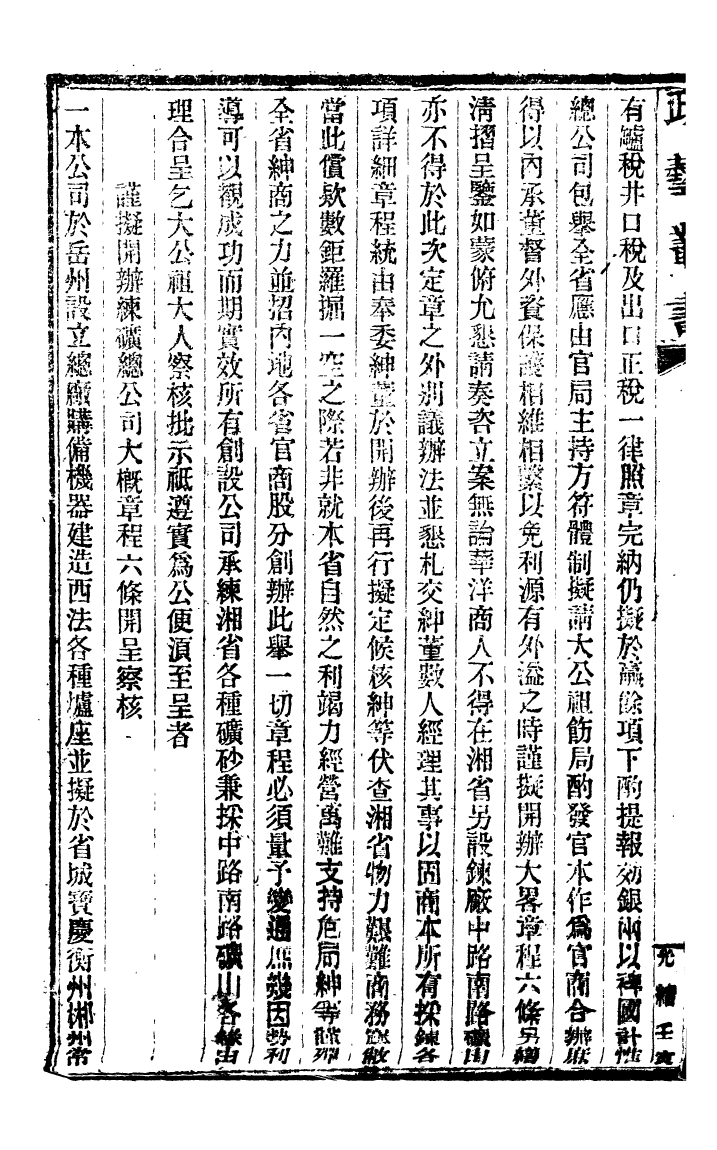 政藝叢書
光緒壬寅
有爐稅井口稅及出口正稅一律照章完納仍擬於贏餘項下酌提報効銀兩以裨國計性
總公司包舉全省應由官局主持方符體制擬請大公祖飭局酌發官本作爲官商合辦庶
得以內承董督外資保護相維相繫以免利源有外溢之時謹擬開辦大畧章程六條另繕
清摺呈鑒如蒙俯允懇請奏咨立案無論華洋商人不得在湘省另設鍊廠中路南路礦山
亦不得於此次定章之外別議辦法並懇札交紳董數人經理其事以固商本所有採鍊各
項詳細章程統由奉委紳董於開辦後再行擬定候核紳等伏查湘省物力艱難商務
當此償欵數鉅羅掘一空之際若非就本省自然之利竭力經營萬難支持危局紳等
全省紳商之力並招內地各省官商股分創辦此舉一切章程必須量予變通庶幾因勢利
導可以觀成功而期實效所有創設公司承練湘省各種礦砂兼採中路南路礦山各緣由
理合呈乞大公祖大人察核批示祗遵實爲公便湏至呈者
謹擬開辦練礦總公司大槪章程六條開呈察核
一本公司於岳州設立總廠購備機器建造西法各種爐座並擬於省城寶慶衡州郴州常